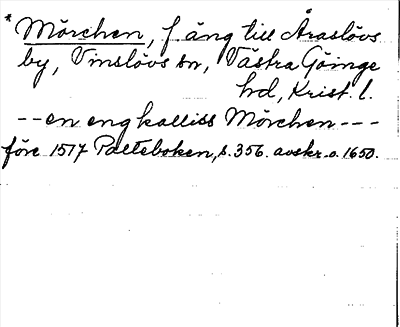 * Mörchen, f äng till Araslövs
by, Vinslövs sn, Västra Göinge
hd, Krist. l.
-- en eng kalliss Mörchen ---
före 1517 Palteboken, s. 356. avskr. o. 1650.